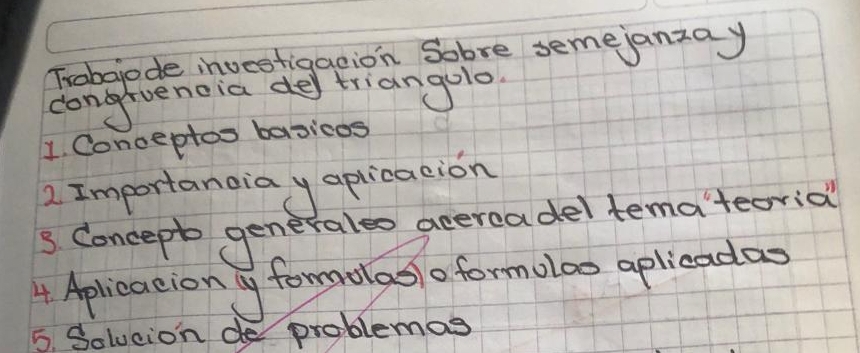 Trabajo de investigación Sobre semejanza y
congruencia del triangulo.
1. Conceptos basicos
2 Importancia y aplicación
3. Concepto generales acerca del tema "teoria"
4. Aplicacion (y formulas) o formulas aplicadas
5. Solución de problemas